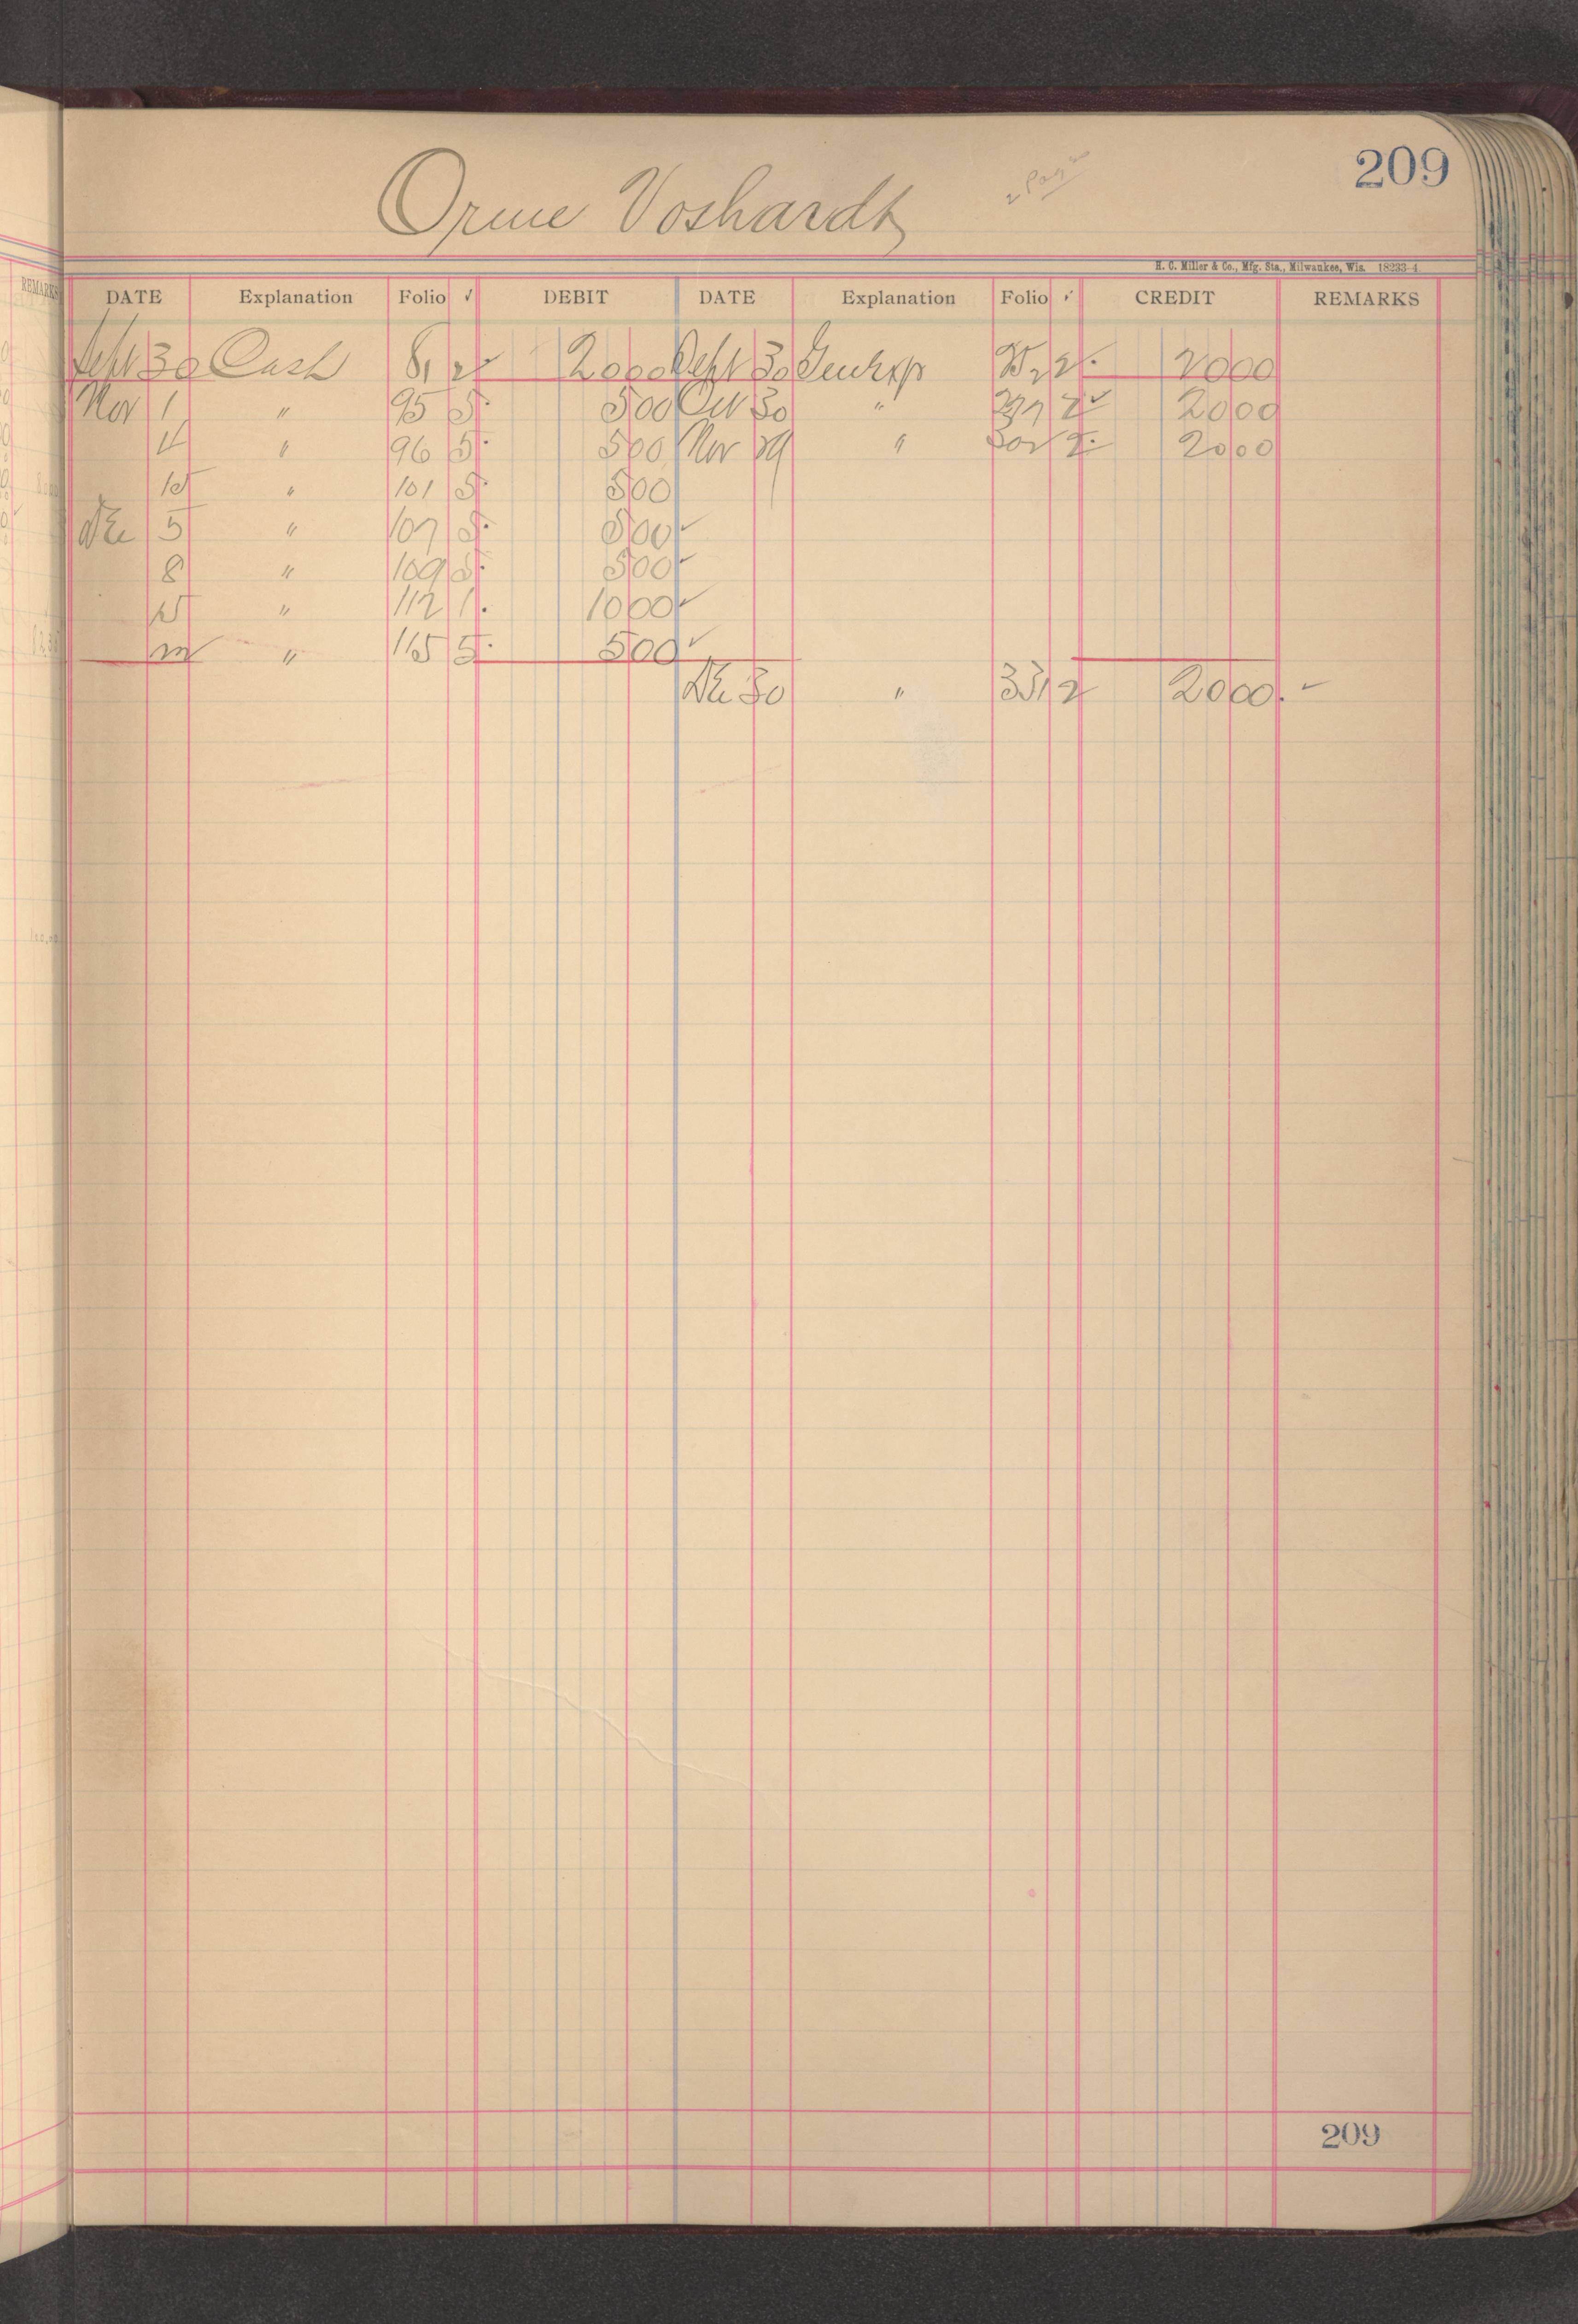 209
Orme Voshardt
H. C. Miller & Co., Mfg. Sta., Milwaukee, Wis. 18233-4
REMARKS
DATE Explanation Folio ✓ DEBIT DATE Explanation Folio ✓ CREDIT REMARKS
Sept 30 Cash 81 2 2000 Sept 30 Gen Exp 2 2000
Nov 1 " 95 5 500 Oct 30 " 2 2000
4 " 96 5 500 Nov 29 " 302 2 2000
15 " 101 5 500
Dec 5 " 107 5 500 ✓
8 " 109 5 500 ✓
15 " 112 1 1000 ✓
" 115 5 500 ✓
Dec 30 " 331 2 2000 ✓
209